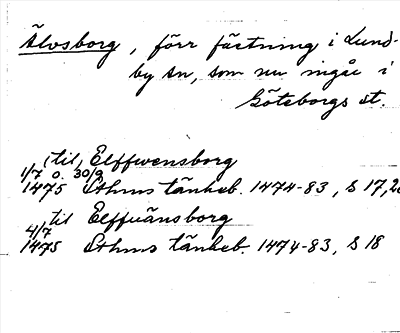 Älvsborg, förr fästning i Lund-
by sn, som nu ingår i
Göteborgs st.
(til) Elffwensborg
1/7 o. 30/9
1475 Sthms tänkeb. 1474-83, s 17,
til Elffuänsborg
4/7
1475 Sthms tänkeb. 1474-83, s 18